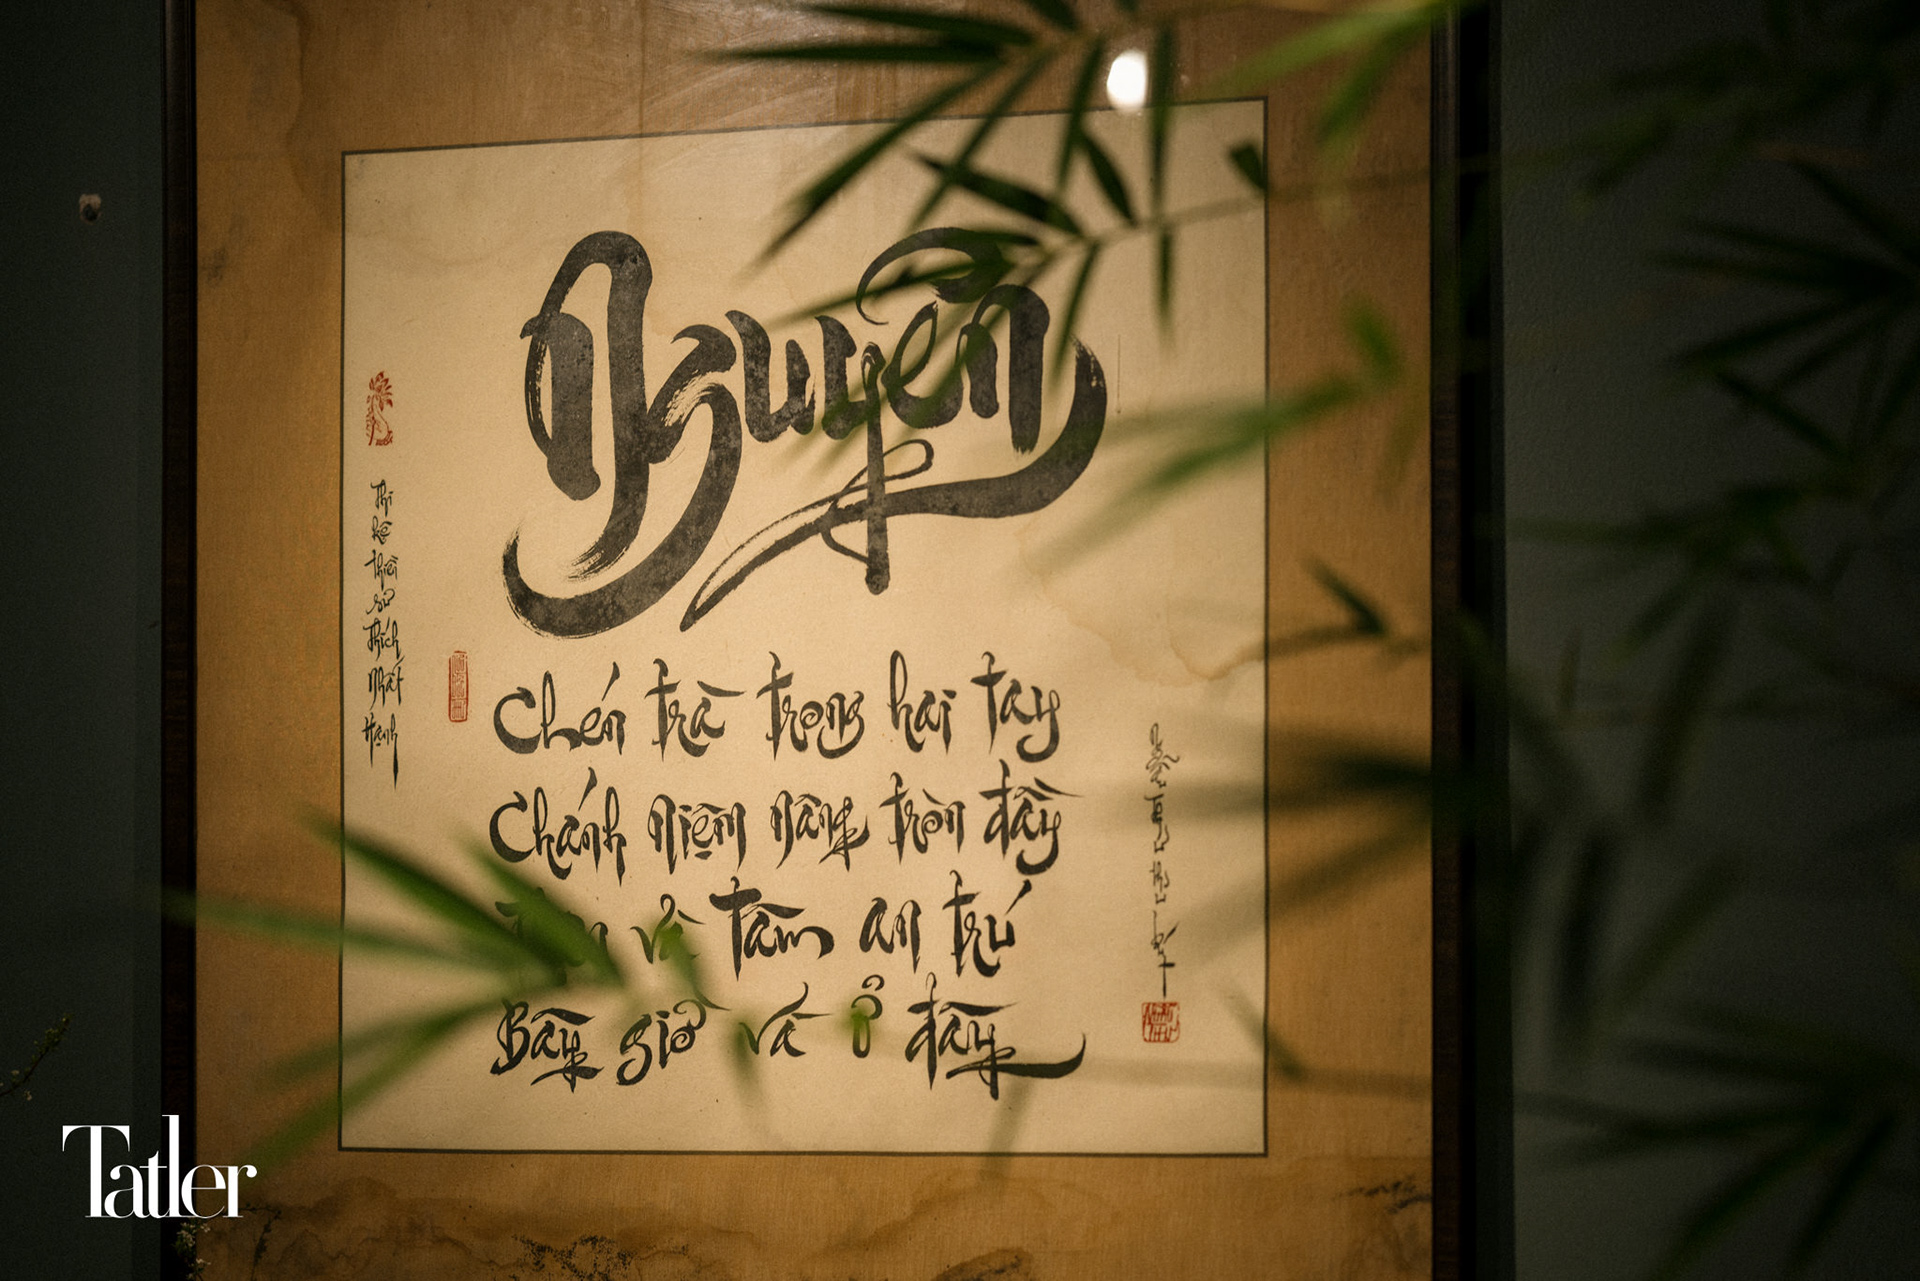 Nguyện
Thi kệ thiền sư Thích Nhất Hạnh
Chén trà trong hai tay
Chánh niệm nâng tròn đầy
và tâm an trú
Bây giờ và ở đây
Tatler